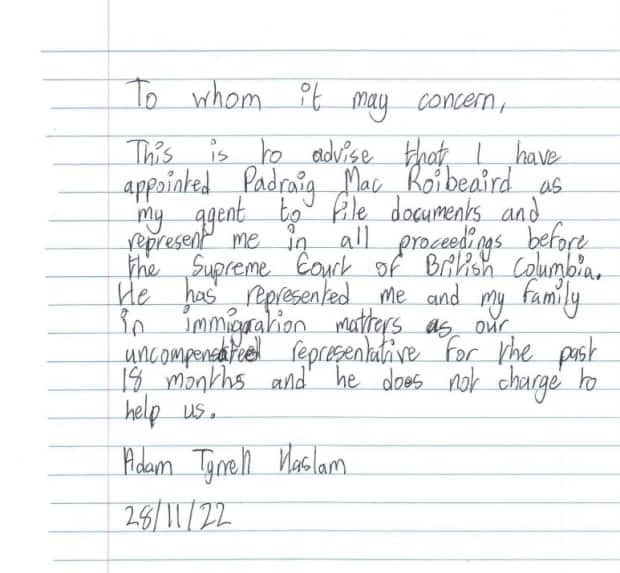 To whom it may concern,
This is to advise that I have
appointed Padraig Mac Roibeaird as
my agent to file documents and
represent me in all proceedings before
the Supreme Court of British Columbia.
He has represented me and my family
in immigration matters as our
uncompensated representative for the past
18 months and he does not charge to
help us.
Adam Tyrell Haslam
28/11/22